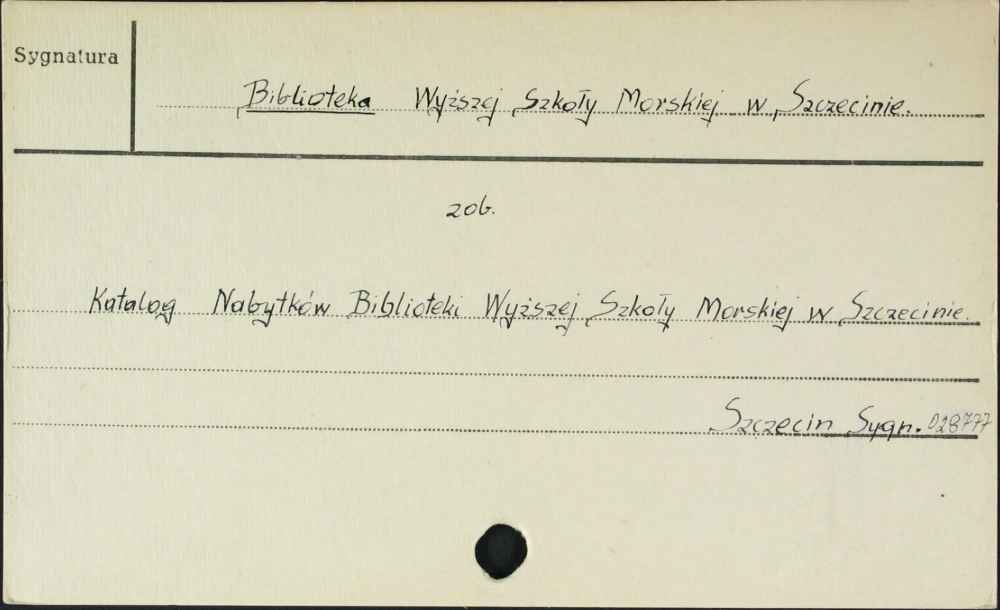 Sygnatura
Biblioteka Wyższej Szkoły Morskiej w Szczecinie.
zob.
Katalog Nabytków Biblioteki Wyższej Szkoły Morskiej w Szczecinie.
Szczecin Sygn. 028777